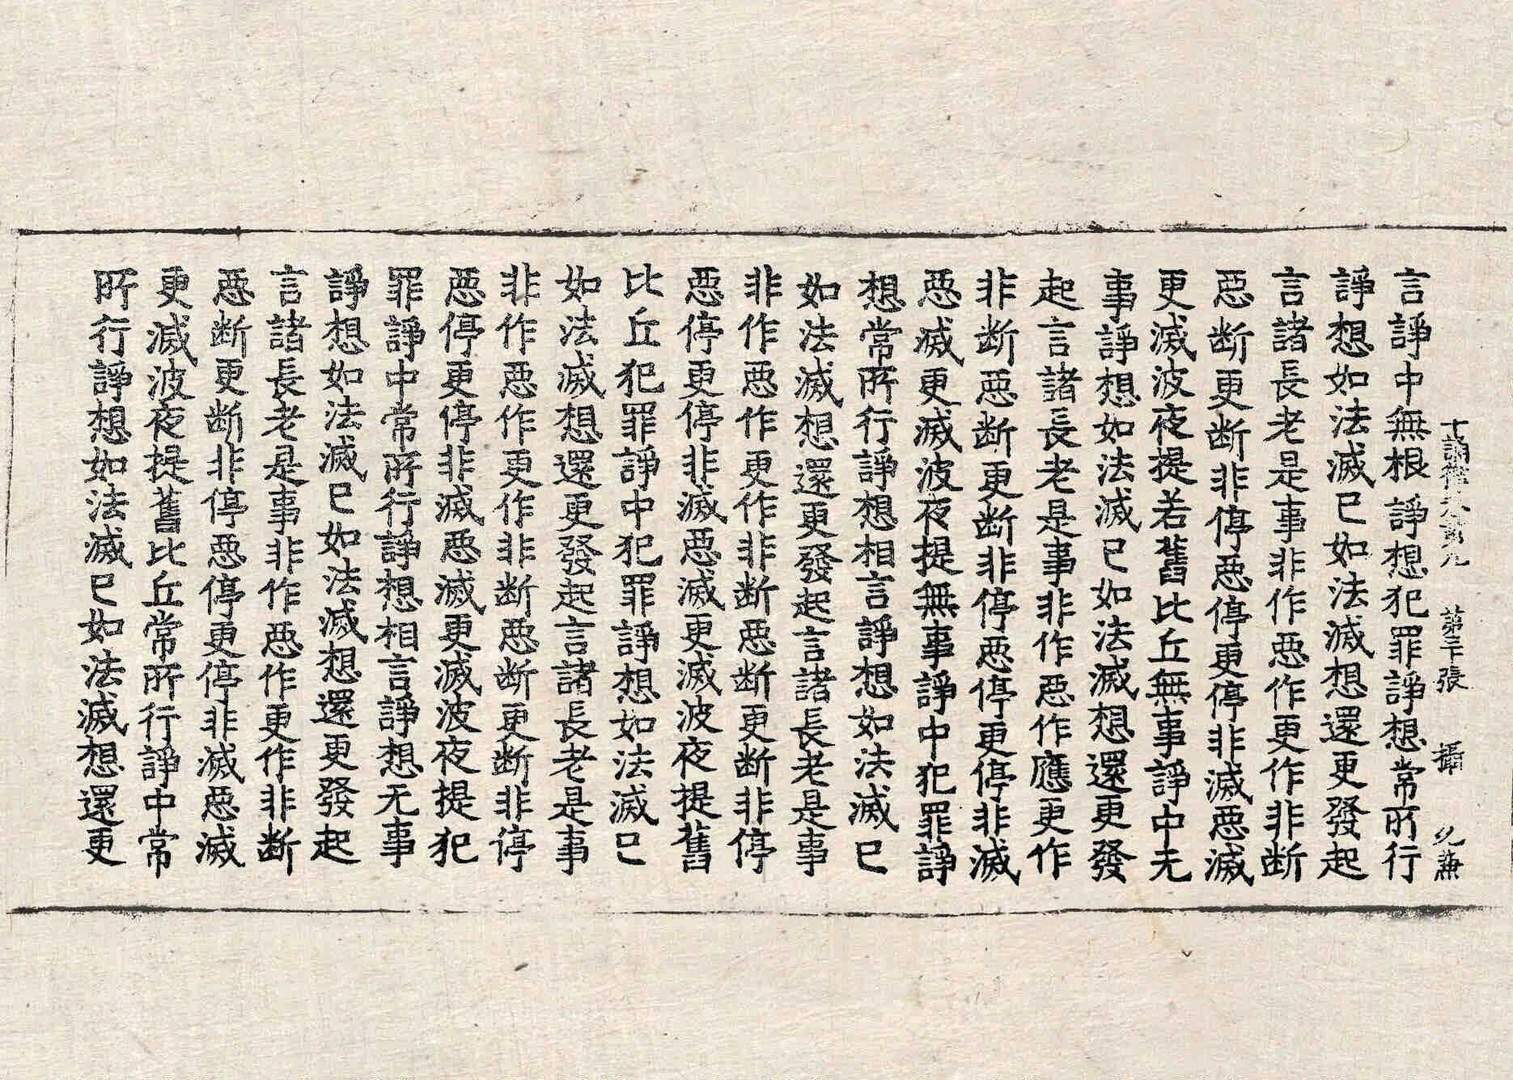 十誦律 張 攝
言諍中無根諍想犯罪諍想常所行
諍想如法滅已如法滅想還更發起
言諸長老是事非作惡作更作非断
惡断更断非停惡停更停非滅惡滅
更滅波夜提若舊比丘無事諍中无
事諍想如法滅已如法滅想還更發
起言諸長老是事非作惡作應更作
非断惡断更断非停惡停更停非滅
惡滅更滅波夜提無事諍中犯罪諍
想常所行諍想相言諍想如法滅已
如法滅想還更發起言諸長老是事
非作惡作更作非断惡断更断非停
惡停更停非滅惡滅更滅波夜提舊
比丘犯罪諍中犯罪諍想如法滅已
如法滅想還更發起言諸長老是事
非作惡作更作非断惡断更断非停
惡停更停非滅惡滅更滅波夜提犯
罪諍中常所行諍想相言諍想无事
諍想如法滅已如法滅想還更發起
言諸長老是事非作惡作更作非断
惡断更断非停惡停更停非滅惡滅
更滅波夜提舊比丘常所行諍中常
所行諍想如法滅已如法滅想還更